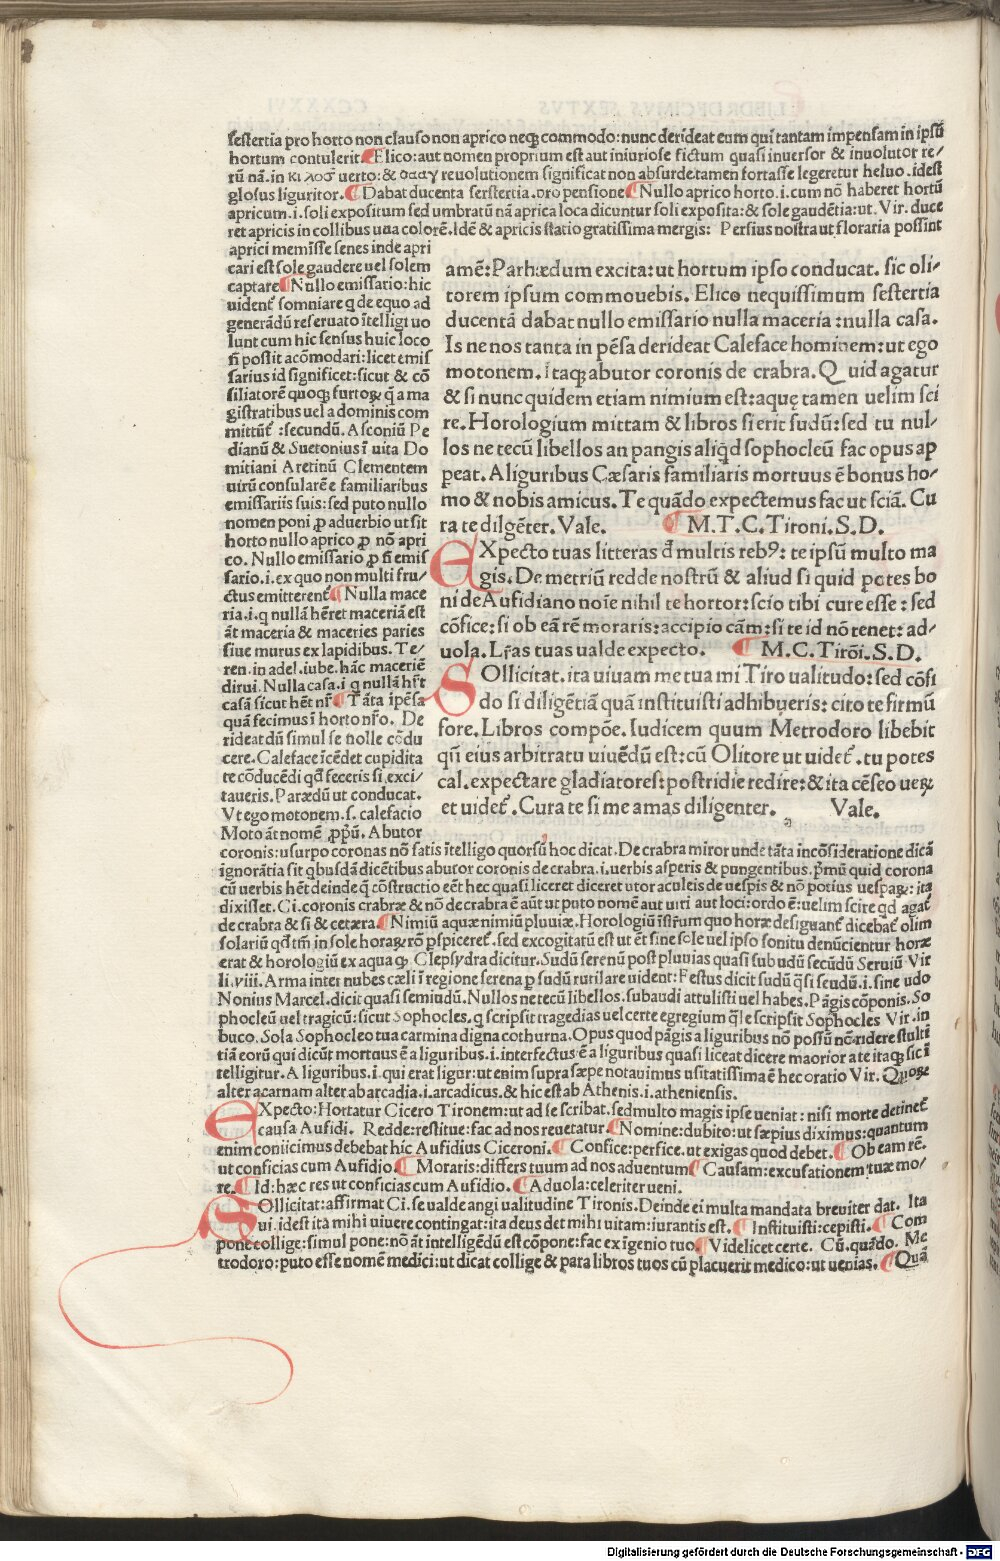 sestertia pro horto non clauso non aprico neqꝫ commodo: nunc derideat eum qui tantam impensam in ipsū
hortum contulerit ¶ Elico: aut nomen proprium est aut iniuriose fictum quasi inuersor & inuolutor re/
rū nā. in κιλοσ uerto: & reuolutionem significat non absurde tamen fortasse legeretur heluo .idest
glosus liguritor. ¶ Dabat ducenta serstertia .pro pensione ¶ Nullo aprico horto .i. cum nō haberet hortū
apricum .i. soli expositum sed umbratū nā aprica loca dicuntur soli exposita: & sole gaudētia: ut. Vir. duce
ret apricis in collibus uua colorē. Idē & apricis statio gratissima mergis: Persius nostra ut floraria possint
aprici meminisse senes inde apri
cari est sole gaudere uel solem
captare ¶ Nullo emissario: hic
uidentᷣ somniare q de equo ad
generādū reseruato ītelligi uo
lunt cum hic sensus huic loco
nō possit acōmodari: licet emis
sarius id significet: sicut & cō
siliatorē quoqꝫ furtoꝝ q̄ a ma
gistratibus uel a dominis com
mittūtᷣ: secundū. Asconiū Pe
dianū & Suetonius ī uita Do
mitiani Aretinū Clementem
uirū consularē e familiaribus
emissariis suis: sed puto nullo
nomen poni ꝓ aduerbio ut sit
horto nullo aprico ꝓ nō apri
co. Nullo emissario ꝓ nō emis
sario .i. ex quo non multi fru/
ctus emitterentᷣ ¶ Nulla mace
ria .i. q nullā hēret maceriā est
āt maceria & maceries paries
siue murus ex lapidibus. Te/
ren. in adel. iube. hāc maceriē
dirui. Nulla casa .i. q nullā hr̄t
casā sicut hēt nr̄ ¶ Tāta īpēsa
quā fecimus ī horto nr̄o. De
rideat dū simul se nolle cōdu
cere. Caleface īcēdet cupidita
te cōducēdi qd̄ feceris si exci/
taueris. Parædū ut conducat.
Vt ego motonem .s. calefacio
Moto āt nomē ꝓpriū. Abutor
amē: Parhædum excita: ut hortum ipso conducat. sic oli/
torem ipsum commouebis. Elico nequissimum sestertia
ducentā dabat nullo emissario nulla maceria: nulla casa.
Is ne nos tanta in pēsa derideat Caleface hominem: ut ego
motonem. itaqꝫ abutor coronis de crabra. Quid agatur
& si nunc quidem etiam nimium est: aquę tamen uelim sci
re. Horologium mittam & libros si erit sudū: sed tu nul/
los ne tecū libellos an pangis aliqd̄ sophocleū fac opus ap
peat. A liguribus Cæsaris familiaris mortuus ē bonus ho/
mo & nobis amicus. Te quādo expectemus fac ut sciā. Cu
ra te diligēter. Vale. ¶ M.T.C. Tironi.S.D.
EXpecto tuas litteras d̄ multis rebꝰ: te ipsū multo ma
gis. De metriū redde nostrū & aliud si quid potes bo
ni de Aufidiano noīe nihil te hortor: scio tibi cure esse: sed
cōfice: si ob eā rē moraris: accipio cām: si te id nō tenet: ad/
uola. Lr̄as tuas ualde expecto. ¶ M.C. Tirōi.S.D.
SOllicitat. ita uiuam me tua mi Tiro ualitudo: sed cōfi
do si diligētiā quā instituisti adhibueris: cito te firmū
fore. Libros compōe. Iudicem quum Metrodoro libebit
qn̄ eius arbitratu uiuēdū est: cū Olitore ut uidetᷣ. tu potes
cal. expectare gladiatores: postridie redire: & ita cēseo ueꝝ
et uidetᷣ. Cura te si me amas diligenter. Vale.
coronis: usurpo coronas nō satis ītelligo quorsū hoc dicat. De crabra miror unde tāta incōsideratione dicā
ignorātia sit q̄busdā dicētibus abutor coronis de crabra .i. uerbis asperis & pungentibus. pͥmū quid corona
cū uerbis hēt deinde q̄ cōstructio eēt hec quasi liceret diceret utor aculeis de uespis & nō potius uespaꝝ: ita
dixisset. Ci. coronis crabræ & nō de crabra ē aūt ut puto nomē aut uiri aut loci: ordo ē: uelim scire qd agatᷣ
de crabra & si & cetæra. ¶ Nimiū aquæ nimiū pluuiæ. Horologiū īstr̄um quo horæ designantᷣ dicebatᷣ olim
solariū qd̄ tm̄ in sole horaꝝ rō ꝑspiceretᷣ. sed excogitatū est ut ēt sine sole uel ipso sonitu denūcientur horæ
erat & horologiū ex aqua qꝫ Clepsydra dicitur. Sudū serenū post pluuias quasi subudū secūdū Seruiū Vir
li. viii. Arma inter nubes cæli ī regione serena ꝑ sudū rutilare uident: Festus dicit sudū q̄si seudū .i. sine udo
Nonius Marcel. dicit quasi semiudū. Nullos ne tecū libellos. subaudi attulisti uel habes. Pāgis cōponis. So
phocleū uel tragicū: sicut Sophocles. q̄ scripsit tragedias uel certe egregium q̄le scripsit Sophocles Vir. in
buco. Sola Sophocleo tua carmina digna cothurna. Opus quod pāgis a liguribus nō possū nō ridere stulti
tiā eorū qui dicūt mortuus ē a liguribus .i. interfectus ē a liguribus quasi liceat dicere maorior a te itaqꝫ sic ī
telligitur. A liguribus .i. qui erat ligur: ut enim supra sæpe notauimus usitatissima ē hec oratio Vir. Quoꝝ
alter acarnam alter ab arcadia .i. arcadicus. & hic est ab Athenis .i. atheniensis.
EXpecto: Hortatur Cicero Tironem: ut ad se scribat. sed multo magis ipse ueniat: nisi morte detinetᷣ
causa Aufidi. Redde: restitue: fac ad nos reuetatur ¶ Nomine: dubito: ut sæpius diximus: quantum
enim coniicimus debebat hic Aufidius Ciceroni. ¶ Confice: perfice. ut exigas quod debet. ¶ Ob eam rē.
ut conficias cum Aufidio ¶ Moraris: differs tuum ad nos aduentum ¶ Causam: excusationem tuæ mo/
re. ¶ Id: hæc res ut conficias cum Aufidio. ¶ Aduola: celeriter ueni.
SOllicitat: affirmat Ci. se ualde angi ualitudine Tironis. Deinde ei multa mandata breuiter dat. Ita
ui. idest ita mihi uiuere contingat: ita deus det mihi uitam: iurantis est. ¶ Instituisti: cepisti. ¶ Com
pone collige: simul pone: nō āt intelligēdū est cōpone: fac ex īgenio tuo ¶ Videlicet certe. Cū. quādo. Me
trodoro: puto esse nomē medici: ut dicat collige & para libros tuos cū placuerit medico: ut uenias. ¶ Quā
Digitalisierung gefördert durch die Deutsche Forschungsgemeinschaft - DFG